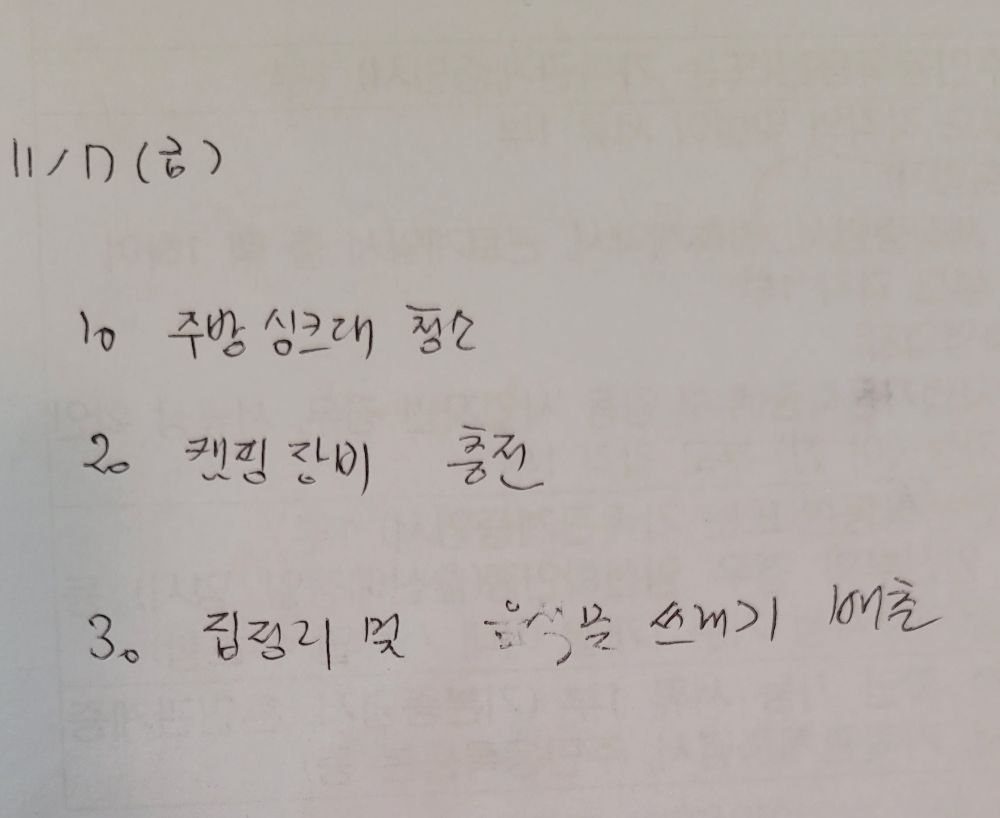 11/17(금)
1. 주방 싱크대 청소
2. 캠핑 장비 충전
3. 집정리 및 음식물 쓰레기 배출